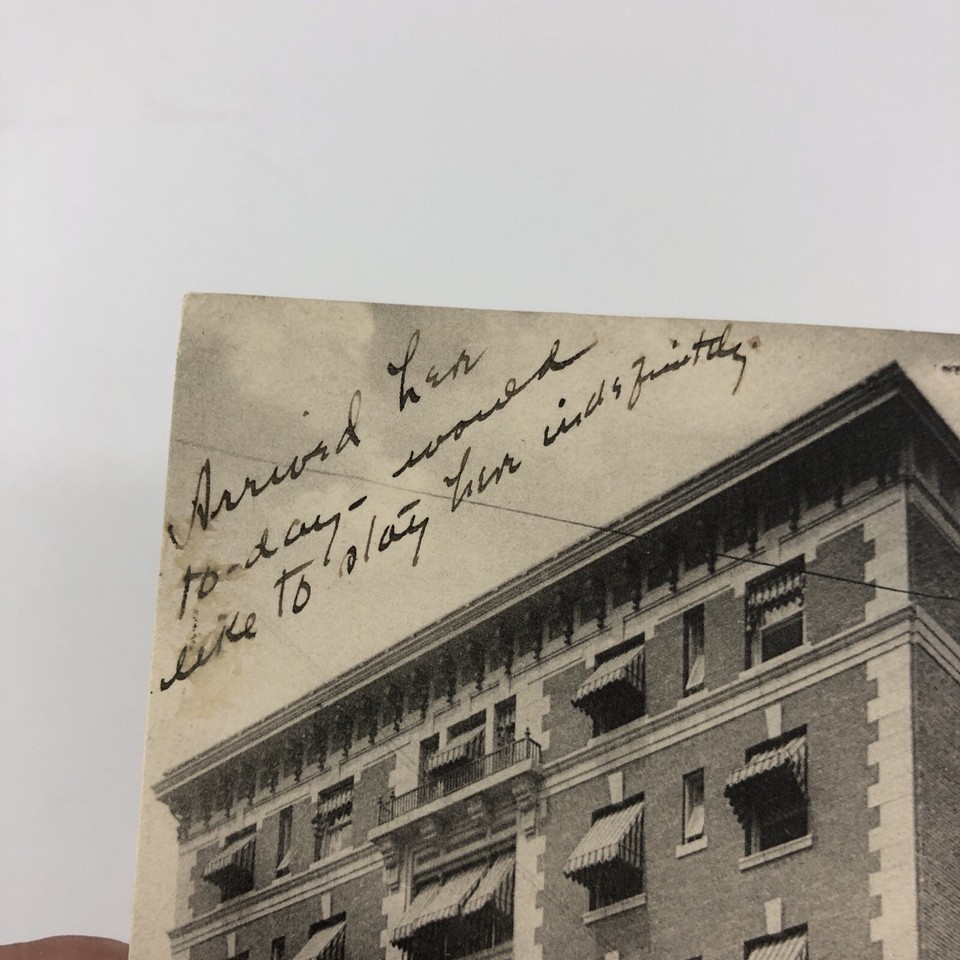 Arrived her
to-day- would
like to stay her indefinitly.